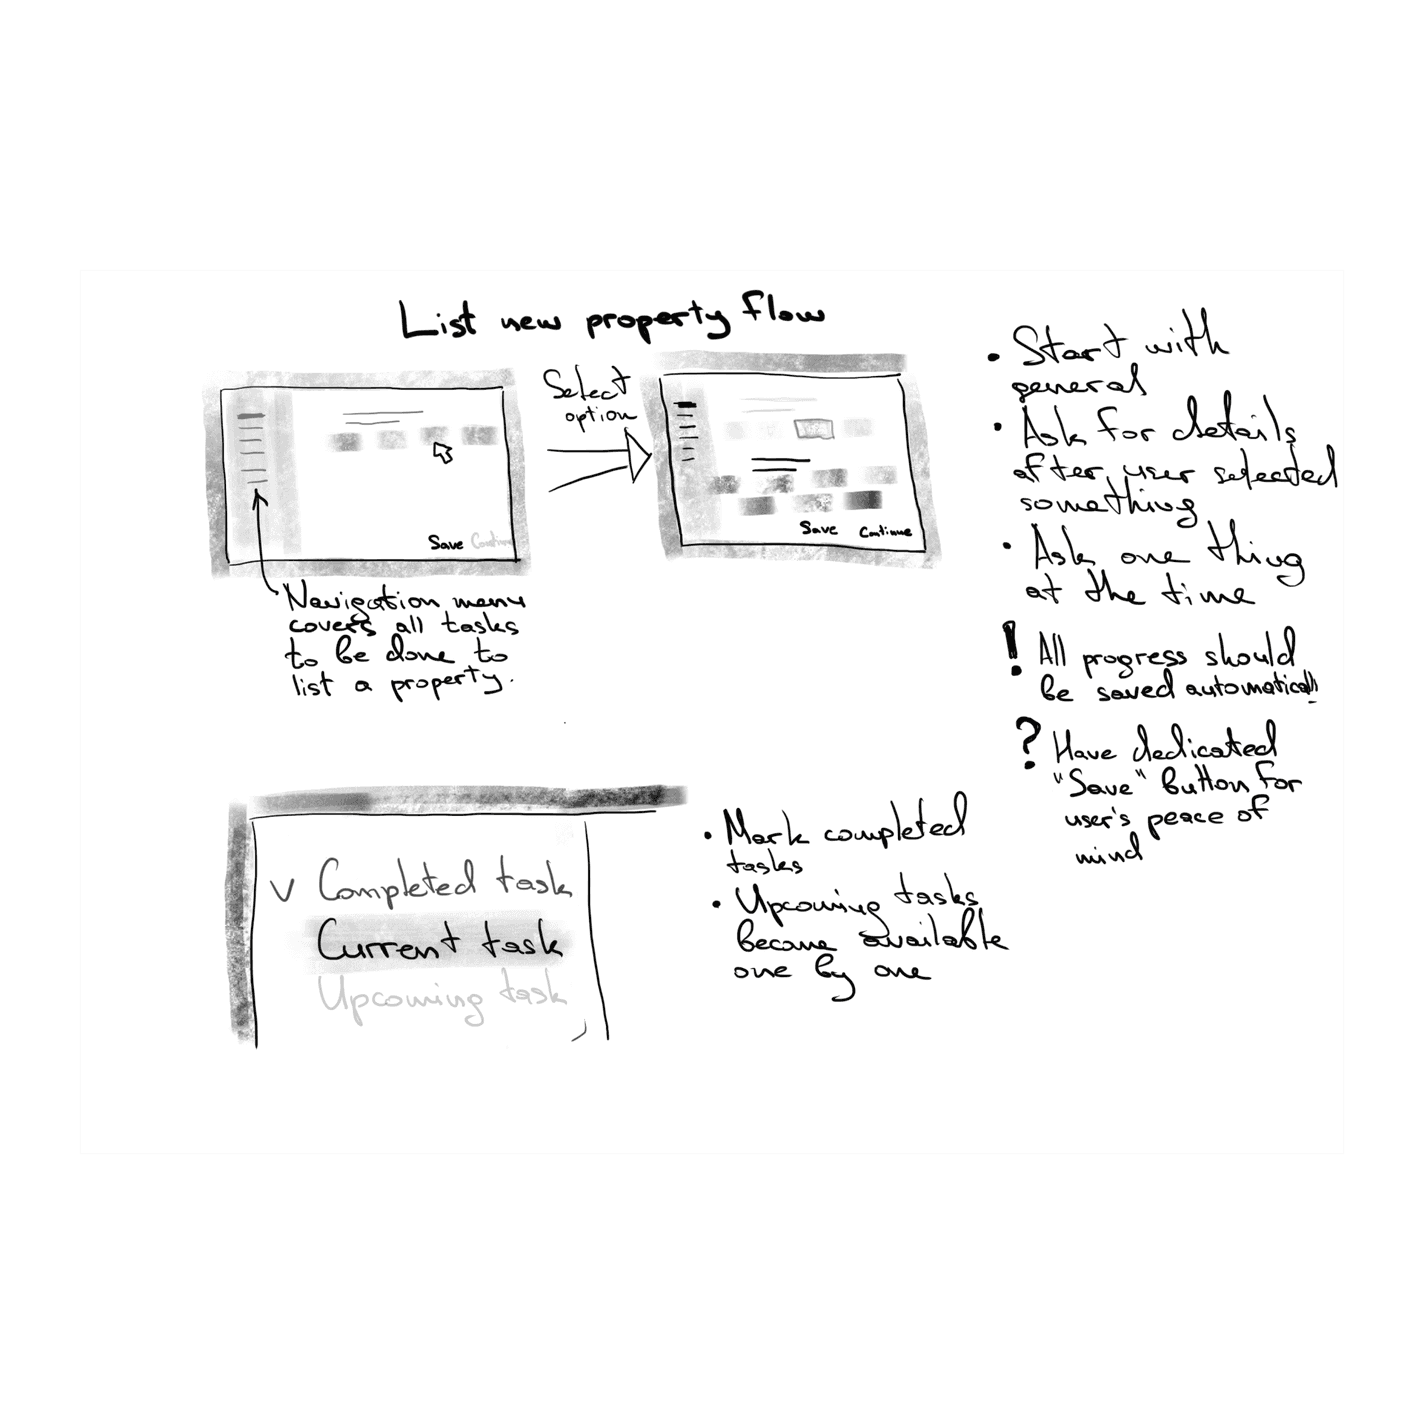 List new property flow
Select
option
Save Continue
Save Continue
Navigation menu
covers all tasks
to be done to
list a property.
• Start with
general
• Ask for details
after user selected
something
• Ask one thing
at the time
! All progress should
be saved automatically
? Have dedicated
"Save" button for
user's peace of
mind
V Completed task
Current task
Upcoming task
• Mark completed
tasks
• Upcoming tasks
become available
one by one